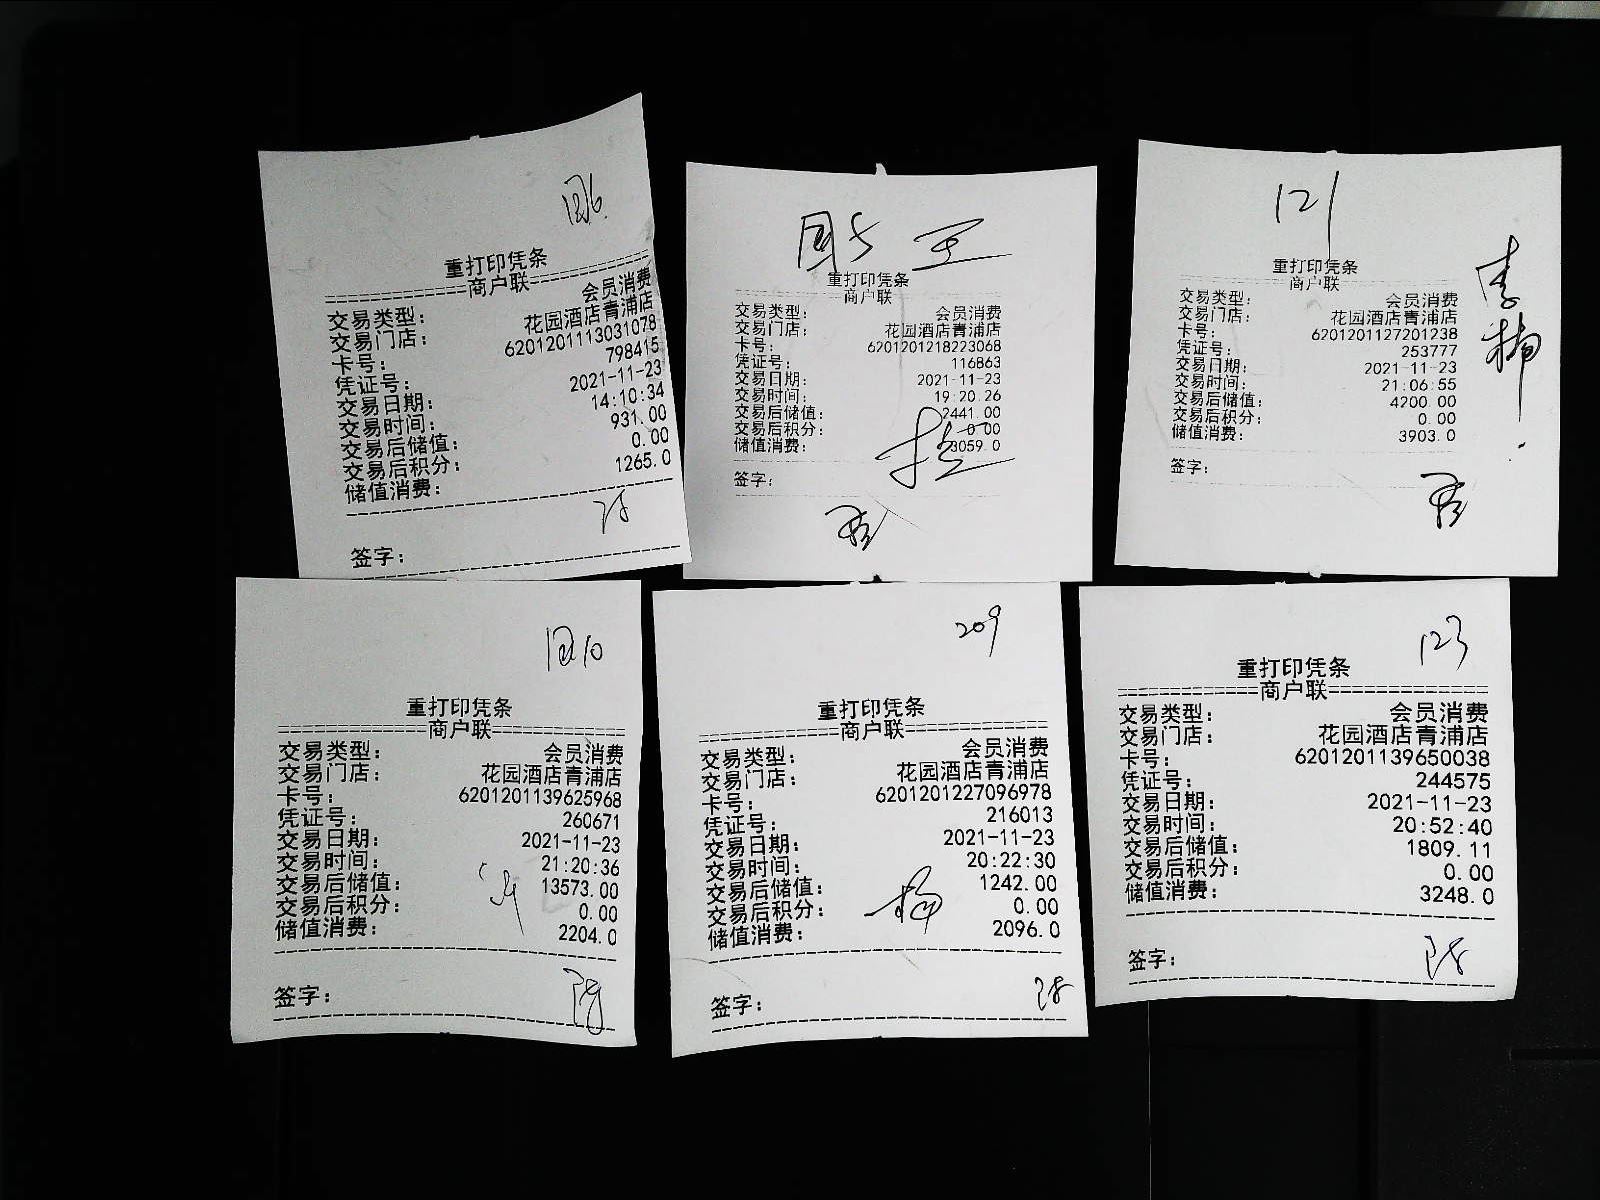 重打印凭条
商户联
交易类型： 会员消费
交易门店： 花园酒店青浦店
卡号： 6201201113031078
凭证号： 798415
交易日期： 2021-11-23
交易时间： 14:10:34
交易后储值： 931.00
交易后积分： 0.00
储值消费： 1265.0
签字：
重打印凭条
商户联
交易类型： 会员消费
交易门店： 花园酒店青浦店
卡号： 6201201218223068
凭证号： 116863
交易日期： 2021-11-23
交易时间： 19:20:26
交易后储值： 2441.00
交易后积分： 0.00
储值消费： 3059.0
签字：
121
重打印凭条
商户联
交易类型： 会员消费
交易门店： 花园酒店青浦店
卡号： 6201201127201238
凭证号： 253777
交易日期： 2021-11-23
交易时间： 21:06:55
交易后储值： 4200.00
交易后积分： 0.00
储值消费： 3903.0
签字：
重打印凭条
商户联
交易类型： 会员消费
交易门店： 花园酒店青浦店
卡号： 6201201139625968
凭证号： 260671
交易日期： 2021-11-23
交易时间： 21:20:36
交易后储值： 13573.00
交易后积分： 0.00
储值消费： 2204.0
签字：
209
重打印凭条
商户联
交易类型： 会员消费
交易门店： 花园酒店青浦店
卡号： 6201201227096978
凭证号： 216013
交易日期： 2021-11-23
交易时间： 20:22:30
交易后储值： 1242.00
交易后积分： 0.00
储值消费： 2096.0
签字：
123
重打印凭条
商户联
交易类型： 会员消费
交易门店： 花园酒店青浦店
卡号： 6201201139650038
凭证号： 244575
交易日期： 2021-11-23
交易时间： 20:52:40
交易后储值： 1809.11
交易后积分： 0.00
储值消费： 3248.0
签字：